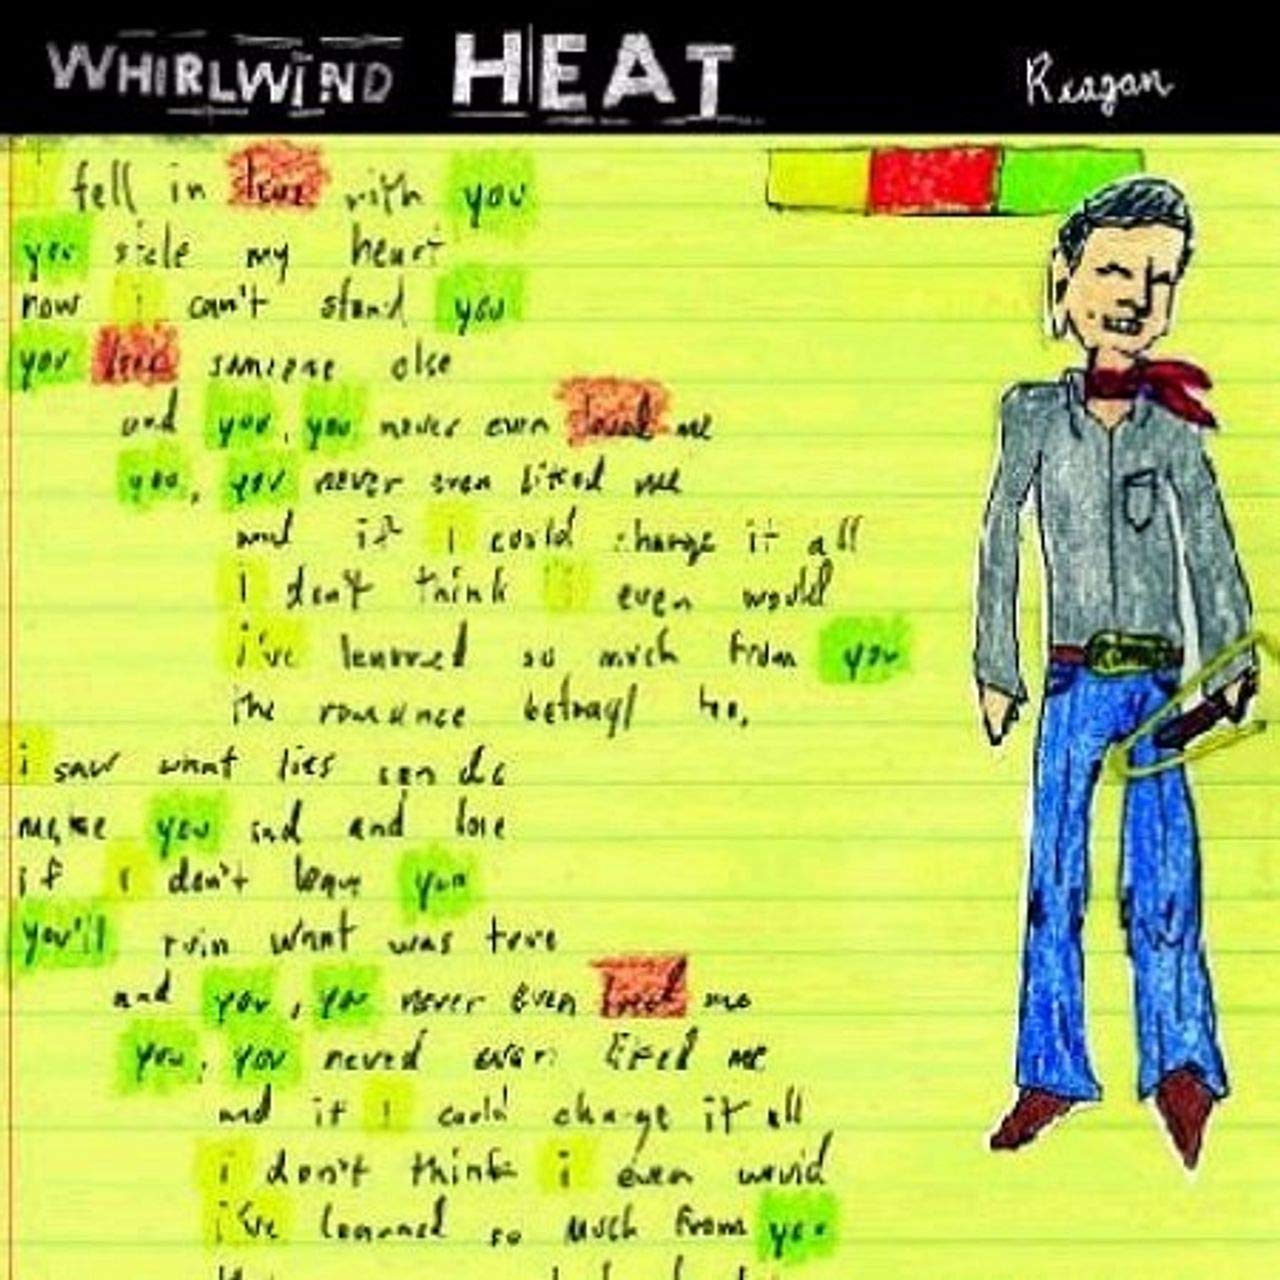 WHIRLWIND HEAT
Reagan
i fell in love with you
you stole my heart
now i can't stand you
you love someone else
and you, you never even loved me
you, you never even liked me
and if i could change it all
i don't think i even would
i've learned so much from you
the romance betrayl
i saw what lies can do
make you sad and love
if i don't leave you
you'll ruin what was true
and you, you never even loved me
you, you never even liked me
and if i could change it all
i don't think i even would
i've learned so much from you